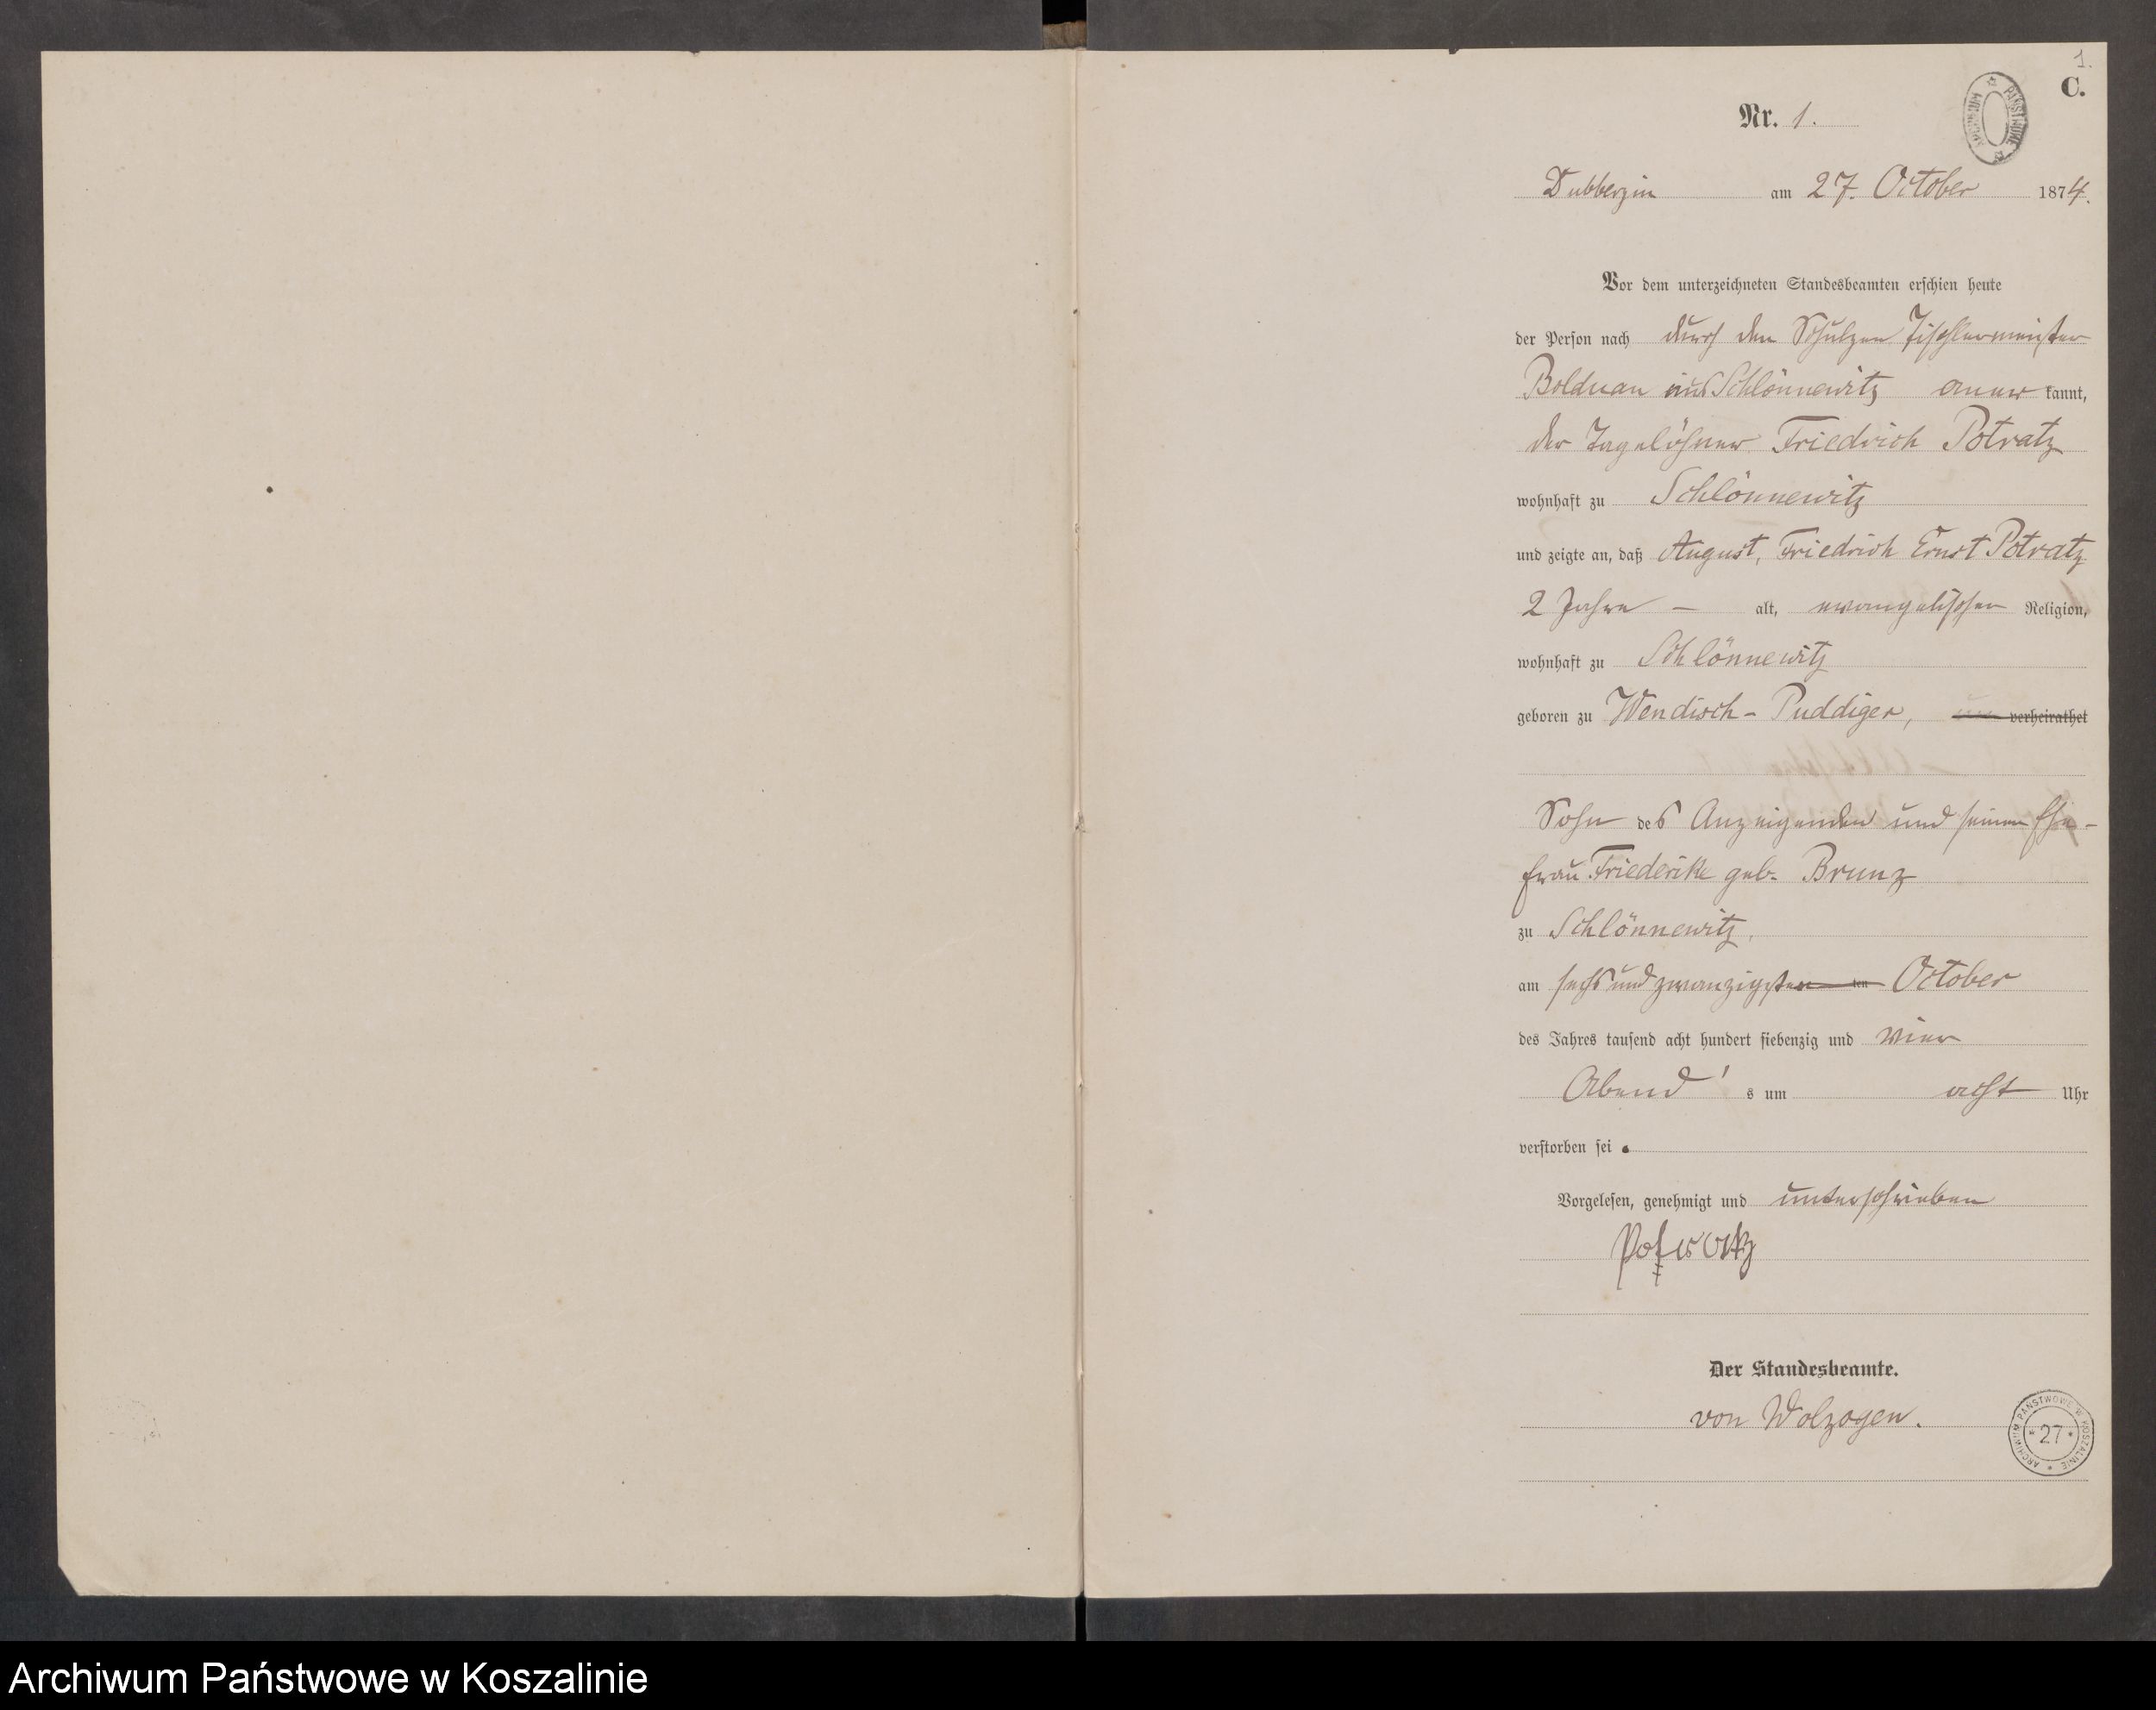 1.
C.
ARCHIWUM PAŃSTWOWE
Nr. 1.
Dubberzin am 27. October 1874.
Vor dem unterzeichneten Standesbeamten erschien heute
der Person nach durch den Schulzen Tischlermeister
Bolduan aus Schlönnewitz aner kannt,
der Tagelöhner Friedrich Potratz
wohnhaft zu Schlönnewitz
und zeigte an, daß August, Friedrich Ernst Potratz
2 Jahre – alt, evangelischer Religion,
wohnhaft zu Schlönnewitz
geboren zu Wendisch-Puddiger, verheirathet
Sohn des Anzeigenden und seiner Ehe-
frau Friederike geb. Brunz
zu Schlönnewitz,
am sechsundzwanzigsten ten October
des Jahres tausend acht hundert siebenzig und vier
Abend's um acht Uhr
verstorben sei .
Vorgelesen, genehmigt und unterschrieben
Potratz
Der Standesbeamte.
von Wolzogen.
ARCHIWUM PAŃSTWOWE W KOSZALINIE * 27 *
Archiwum Państwowe w Koszalinie